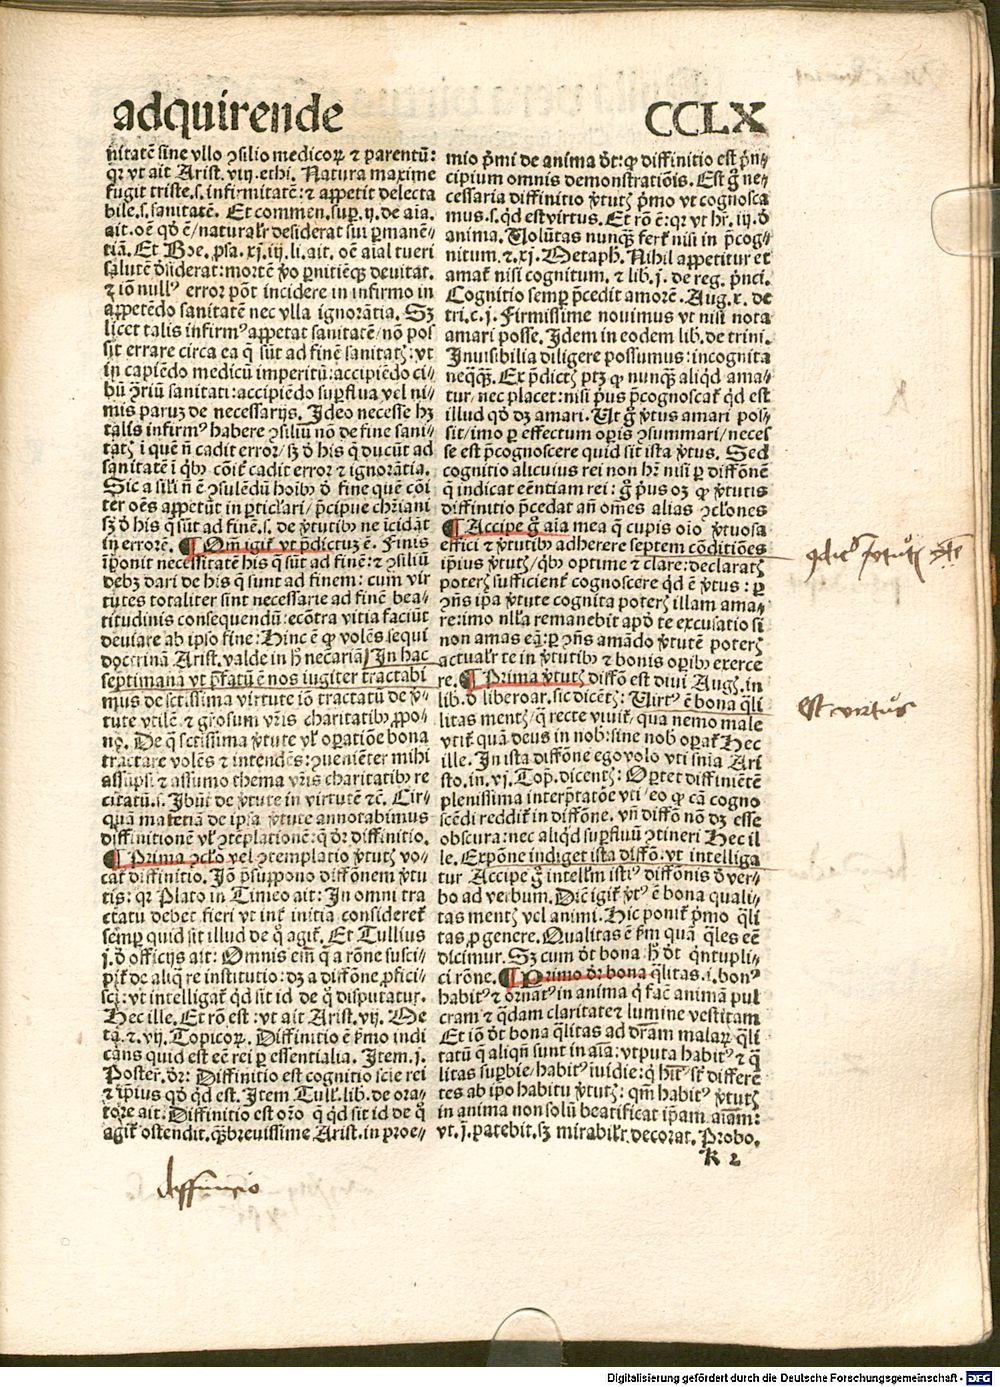 adquirende
CCLX
nitatē sine vllo ↄsilio medicoꝝ ⁊ parentū:
qꝛ vt ait Arist. viij. ethi. Natura maxime
fugit triste .s. infirmitatē: ⁊ appetit delecta
bile .s. sanitatē. Et commen. suꝑ. ij. de aia.
ait. oē qḋ ē / naturalr̄ desiderat sui ꝑmanē-
tiā. Et Boe. ꝓsa. xj. iij. li. ait. oē aīal tueri
salutē ḋsiderat: mortē ꝟo ꝑnitiēqꝫ deuitat.
⁊ iō nullꝰ error pōt incidere in infirmo in
appetēdo sanitatē nec vlla ignorātia. Sꝫ
licet talis infirmꝰ appetat sanitatē / nō pos
sit errare circa ea q̄ sūt ad finē sanitatꝭ: vt
in capiēdo medicū imperitū: accipiēdo ci-
bū ↄ̄triū sanitati: accipiēdo suꝑflua vel ni-
mis paruꝫ de necessarijs. Ideo necesse hꝫ
talis infirmꝰ habere ↄsiliū nō de fine sani-
tatꝭ ī que n̄ cadit error / sꝫ ḋ his q̄ ducūt ad
sanitatē ī qͥbꝰ cōiṫ cadit error ⁊ ignorātia.
Sic a sili n̄ ē ↄsulēdū hoībꝰ ḋ fine quē cōi
ter oēs appetūt in ꝑticlari / p̄cipue chr̄iani
sꝫ ḋ his q̄ sūt ad finē .s. de ꝟtutibꝰ ne icidāt
in errorē. ¶ Om̄ igiṫ vt p̄dictuꝫ ē. Finis
īponit necessitatē his q̄ sūt ad finē: ⁊ ↄsiliū
debꝫ dari de his q̄ sunt ad finem: cum vir
tutes totaliter sint necessarie ad finē bea-
titudinis consequendū: ecōtra vitia faciūt
deuiare ab ipso fine: Hinc ē ꝙ volēs sequi
doctrinā Arist. valde in h̄ necariā / In hac
septimana vt p̄fatū ē nos iugiter tractabi
mus de sctissima virtute iō tractatū de ꝟ-
tute vtilē ⁊ grosum vr̄is charitatibꝰ ꝓpo-
nō. De q̄ sctissima ꝟtute vl̄ oꝑatiōe bona
tractare volēs ⁊ intendēs: ↄueniēter mihi
assūpsi ⁊ assumo thema vr̄is charitatibꝰ re
citatū .s. Ibūt de ꝟtute in virtutē ⁊c̄. Cir-
quā materiā de ipsa ꝟtute annotabimus
diffinitionē vl̄ ↄtēplationē: q̄ dr̄ diffinitio.
¶ Prima ↄclo vel ↄtemplatio ꝟtutꝭ vo-
caṫ diffinitio. Iō p̄suppono diffōnem ꝟtu
tis: qꝛ Plato in Timeo ait: In omni tra
ctatu debet fieri vt inṫ initia considereṫ
semꝑ quid sit illud de q̊ agiṫ. Et Tullius
j. ḋ officijs ait: Omnis eīm q̄ a rōne susci-
piṫ de aliq̄ re institutio: dꝫ a diffōne ꝓfici-
sci: vt intelligaṫ qͥd sit id de q̊ disputatur.
Hec ille. Et rō est: vt ait Arist. vij. Me
ta. ⁊ vij. Topicoꝝ. Diffinitio ē ẜmo indi
cans quid est eē rei ꝑ essentialia. Item .j.
Poster. dr̄: Diffinitio est cognitio scie rei
⁊ ip̄ius qḋ qͥd est. Item Tull. lib. de ora-
tore ait: Diffinitio est or̄o q̄ qͥd sit id de q̊
agiṫ ostendit. qͣꝫbreuissime Arist. in proe-
mio p̄mi de anima dt̄: ꝙ diffinitio est p̄n-
cipium omnis demonstratiōis. Est g̊ ne-
cessaria diffinitio ꝟtutꝭ p̄mo vt cognosca
mus .s. qͥd est virtus. Et rō ē: qꝛ vt hr̄. iij. ḋ
anima. Volūtas nunqͣꝫ ferṫ nisi in p̄cog-
nitum. ⁊ .xj. Metaph. Nihil appetitur et
amaṫ nisi cognitum. ⁊ lib. j. de reg. pn̄ci.
Cognitio semꝑ p̄cedit amorē. Aug. x. de
tri. c. j. Firmissime nouimus vt nisi nota
amari posse. Idem in eodem lib. de trini.
Inuisibilia diligere possumus: incognita
neqͣqͣꝫ. Ex p̄dictꝭ ptꝫ ꝙ nunqͣꝫ aliqͥd ama-
tur / nec placet: nisi pͥus p̄cognoscaṫ qͥd est
illud qḋ dꝫ amari. Ut g̊ ꝟtus amari pos-
sit / imo ꝑ effectum oꝑis ↄsummari / neces
se est p̄cognoscere quid sit ista ꝟtus. Sed
cognitio alicuius rei non hr̄ nisi ꝑ diffōnē
q̄ indicat eēntiam rei: g̊ pͥus oꝫ ꝙ ꝟtutis
diffinitio p̄cedat an̄ om̄es alias ↄclones
¶ Accipe g̊ aīa mea q̄ cupis oīo ꝟtuosa
effici ⁊ ꝟtutibꝰ adherere septem cōditiōes
ip̄ius ꝟtutꝭ / qͥbꝰ optime ⁊ clare: declaratꝭ
poterꝭ sufficienṫ cognoscere qͥd ē ꝟtus: ꝑ
ↄn̄s ip̄a ꝟtute cognita poterꝭ illam ama-
re: imo nll̄a remanebit apḋ te excusatio si
non amas eā: ꝑ ↄn̄s amādo ꝟtutē poterꝭ
actualr̄ te in ꝟtutibꝰ ⁊ bonis oꝑibꝰ exerce
re. ¶ Prima ꝟtutꝭ diffō est diui Augꝭ. in
lib. ḋ liberoar. sic dicētꝭ: Virtꝰ ē bona qͣli
litas mentꝭ / q̄ recte viuiṫ, qua nemo male
vtiṫ quā deus in nob̄ sine nob̄ oꝑaṫ Hec
ille. In ista diffōne ego volo vti snīa Ari
sto. in. vj. Top. dicentꝭ: Oꝑtet diffiniētē
plenissima interp̄tatōe vti / eo ꝙ cā cogno
scēdi reddiṫ in diffōne. vn̄ diffō nō dꝫ esse
obscura: nec aliqͥd suꝑfluū ↄtineri Hec il
le. Expōne indiget ista diffō. vt intelliga
tur Accipe g̊ intellm̄ istiꝰ diffōnis ḋ ver-
bo ad verbum. Dic̄ igiṫ ꝟtꝰ ē bona quali-
tas mentꝭ vel animi. Hic poniṫ p̄mo qͣli
tas, ꝓ genere. Qualitas ē ẜm quā qͣles eē
dicimur. Sꝫ cum dt̄ bona h̄ dt̄ qͥntupli-
ci rōne. ¶ Primo dr̄ bona qͣlitas .i. bonꝰ
habitꝰ ⁊ ornatꝰ in anima q̄ fac̄ animā pul
cram ⁊ qͣdam claritate ⁊ lumine vestitam
Et iō dt̄ bona qͣlitas ad dr̄am malaꝝ qͣli
tatū q̄ aliqn̄ sunt in aīa: vtputa habitꝰ ⁊ q̄
litas suꝑbie / habitꝰ iuidie: q̄ hn̄t sr̄ differē
tes ab ip̄o habitu ꝟtutꝭ: qm̄ habitꝰ ꝟtutꝭ
in anima non solū beatificat ip̄am aīam:
vt. j. patebit. sꝫ mirabilr̄ decorat. Probo.
k 2
est virtus
diffinicio
Digitalisierung gefördert durch die Deutsche Forschungsgemeinschaft - DFG